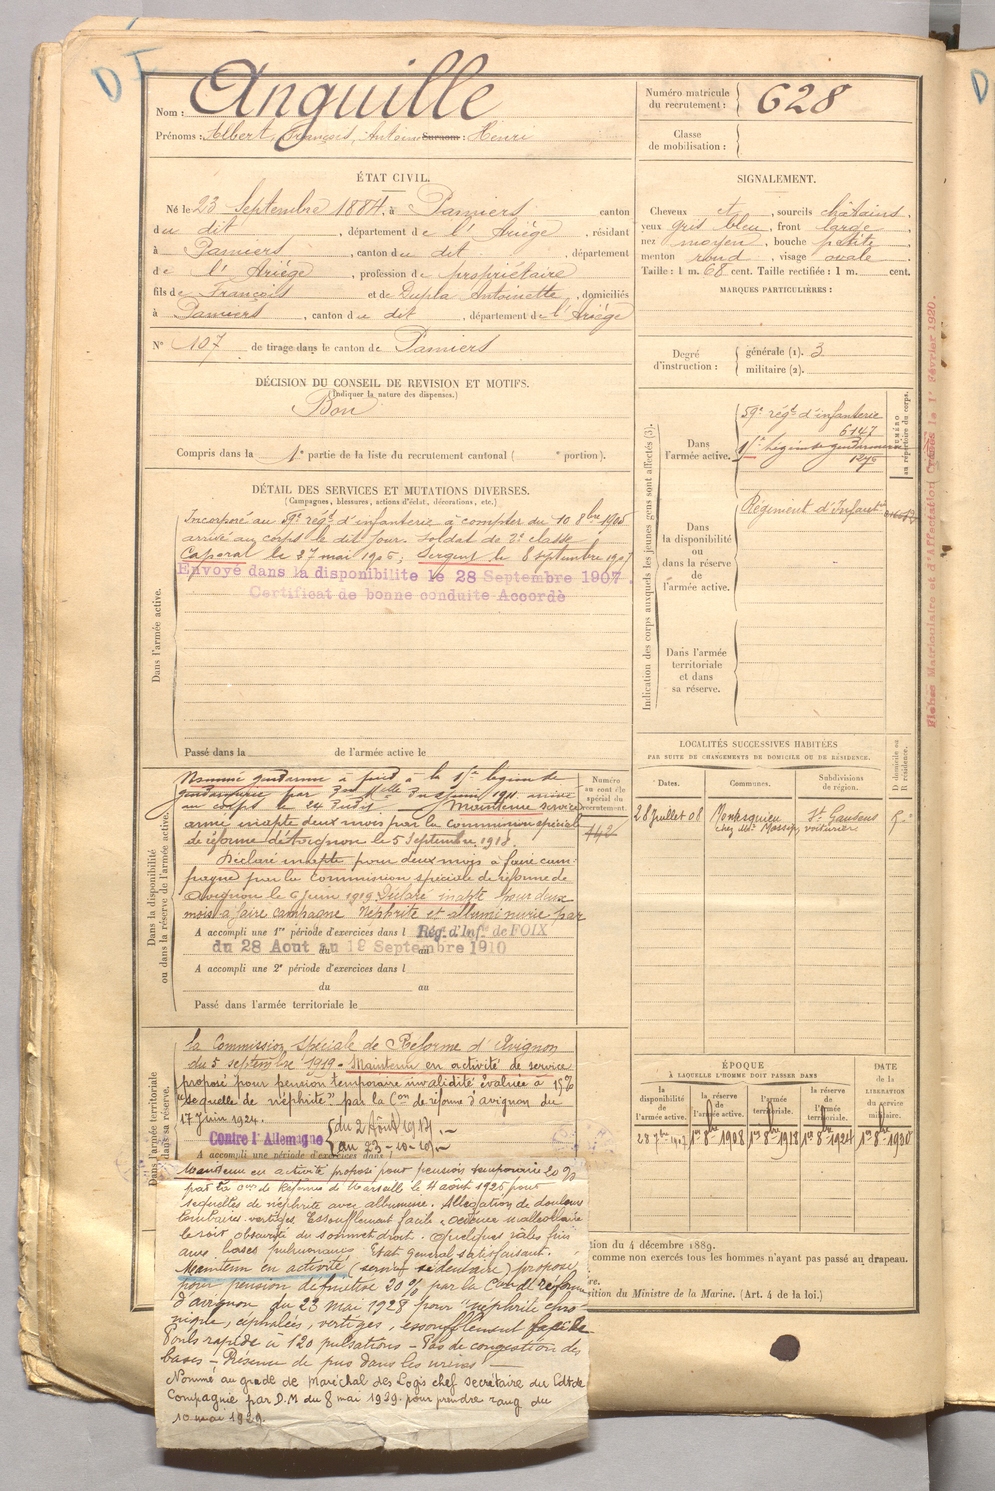 D I
Nom : Anguille
Prénoms : Albert, François, Antoine Surnom : Henri
Numéro matricule
du recrutement : 628
Classe
de mobilisation :
ÉTAT CIVIL.
Né le 23 Septembre 1884, à Pamiers canton
du dit, département de l'Ariège, résidant
à Pamiers, canton du dit, département
de l'Ariège, profession de propriétaire
fils de François et de Dupla Antoinette, domiciliés
à Pamiers, canton du dit, département de l'Ariège
N° 107 de tirage dans le canton de Pamiers
SIGNALEMENT.
Cheveux et, sourcils châtains,
yeux gris bleu, front large
nez moyen, bouche petite
menton rond, visage ovale
Taille : 1 m. 68 cent. Taille rectifiée : 1 m. cent.
MARQUES PARTICULIÈRES :
Degré
d'instruction :
générale (1). 3
militaire (2).
DÉCISION DU CONSEIL DE REVISION ET MOTIFS.
(Indiquer la nature des dispenses.)
Bon
Compris dans la 1e partie de la liste du recrutement cantonal ( e portion).
DÉTAIL DES SERVICES ET MUTATIONS DIVERSES.
(Campagnes, blessures, actions d'éclat, décorations, etc.)
Dans l'armée active.
Incorporé au 59e régt d'infanterie à compter du 10 8bre 1905
arrivé au corps le dit jour. Soldat de 2e classe
Caporal le 27 mai 1906; Sergent le 8 septembre 1907
Envoyé dans la disponibilite le 28 Septembre 1907.
Certificat de bonne conduite Accordé
Passé dans la de l'armée active le
Indication des corps auxquels les jeunes gens sont affectés (3).
NUMÉRO
au répertoire du corps.
Dans
l'armée active.
59e régt d'infanterie
6147
Légion de gendarmerie
Dans
la disponibilité
ou
dans la réserve
de
l'armée active.
Régiment d'Infanterie
Dans l'armée
territoriale
et dans
sa réserve.
Fiches Matriculaire et d'Affectation Créées le 1r Février 1920.
Dans la disponibilité
ou dans la réserve de l'armée active.
Nommé gendarme à pied à la légion de
gendarmerie par
au corps le 24 Maintenu service
armé inapte deux mois par la commission spéciale
de réforme d'Avignon le 5 Septembre 1918.
Déclaré inapte pour deux mois à faire cam-
pagne par la commission spéciale de réforme
Avignon le 6 juin 1919 Déclaré inapte pour deux
mois à faire campagne Nephrite et albuminurie par
Numéro
au contrôle
spécial du
recrutement.
A accompli une 1re période d'exercices dans l Rég. d'Infie de FOIX
du 28 Aout au 19 Septembre 1910
A accompli une 2e période d'exercices dans l
du au
Passé dans l'armée territoriale le
LOCALITÉS SUCCESSIVES HABITÉES
PAR SUITE DE CHANGEMENTS DE DOMICILE OU DE RÉSIDENCE.
Dates.
Communes.
Subdivisions
de région.
D domicile ou
R résidence.
28 Juillet 08 Montesquieu St Gaudens R.
chez Mr Massip, voiturier
Dans l'armée territoriale
et dans sa réserve.
la Commission Spéciale de Réforme d'Avignon
du 5 septembre 1919 - Maintenu en activité de service
proposé pour pension temporaire invalidité évaluée à 15%
"séquelle de néphrite" par la Con de réforme d'avignon du
17 Juin 1924.
Contre l'Allemagne
du 2 Août 1914
au 23-10-19
A accompli une période d'exercices dans
Maintenu en activité proposé pour pension temporaire 20%
par la Con de Réforme de Marseille le 4 août 1925 pour
séquelles de néphrite avec albumine. Allégation de douleurs
lombaires. vertiges Essoufflement facile. œdème malléolaire
le soir obscurité du sommet droit. quelques râles fins
aux bases pulmonaires Etat général satisfaisant.
Maintenu en activité (service sédentaire) proposé
pour pension définitive 20% par la Con de réforme
d'avignon du 23 mai 1928 pour "néphrite chro-
nique, céphalées, vertiges, essoufflement facile
Pouls rapide à 120 pulsations - Pas de congestion des
bases - Présence de pus dans les urines -
Nommé au grade de Maréchal des Logis chef secrétaire du Cdt de
Compagnie par D.M du 8 mai 1929 pour prendre rang du
10 mai 1929.
ÉPOQUE
À LAQUELLE L'HOMME DOIT PASSER DANS
la
disponibilité
de
l'armée active.
la réserve
de
l'armée active.
l'armée
territoriale.
la réserve
de
l'armée
territoriale.
DATE
de la
LIBÉRATION
du service
militaire.
28 7bre 1907 1er 8bre 1908 1er 8bre 1918 1er 8bre 1924 1er 8bre 1930
tion du 4 décembre 1889.
comme non exercés tous les hommes n'ayant pas passé au drapeau.
re.
sition du Ministre de la Marine. (Art. 4 de la loi.)
D